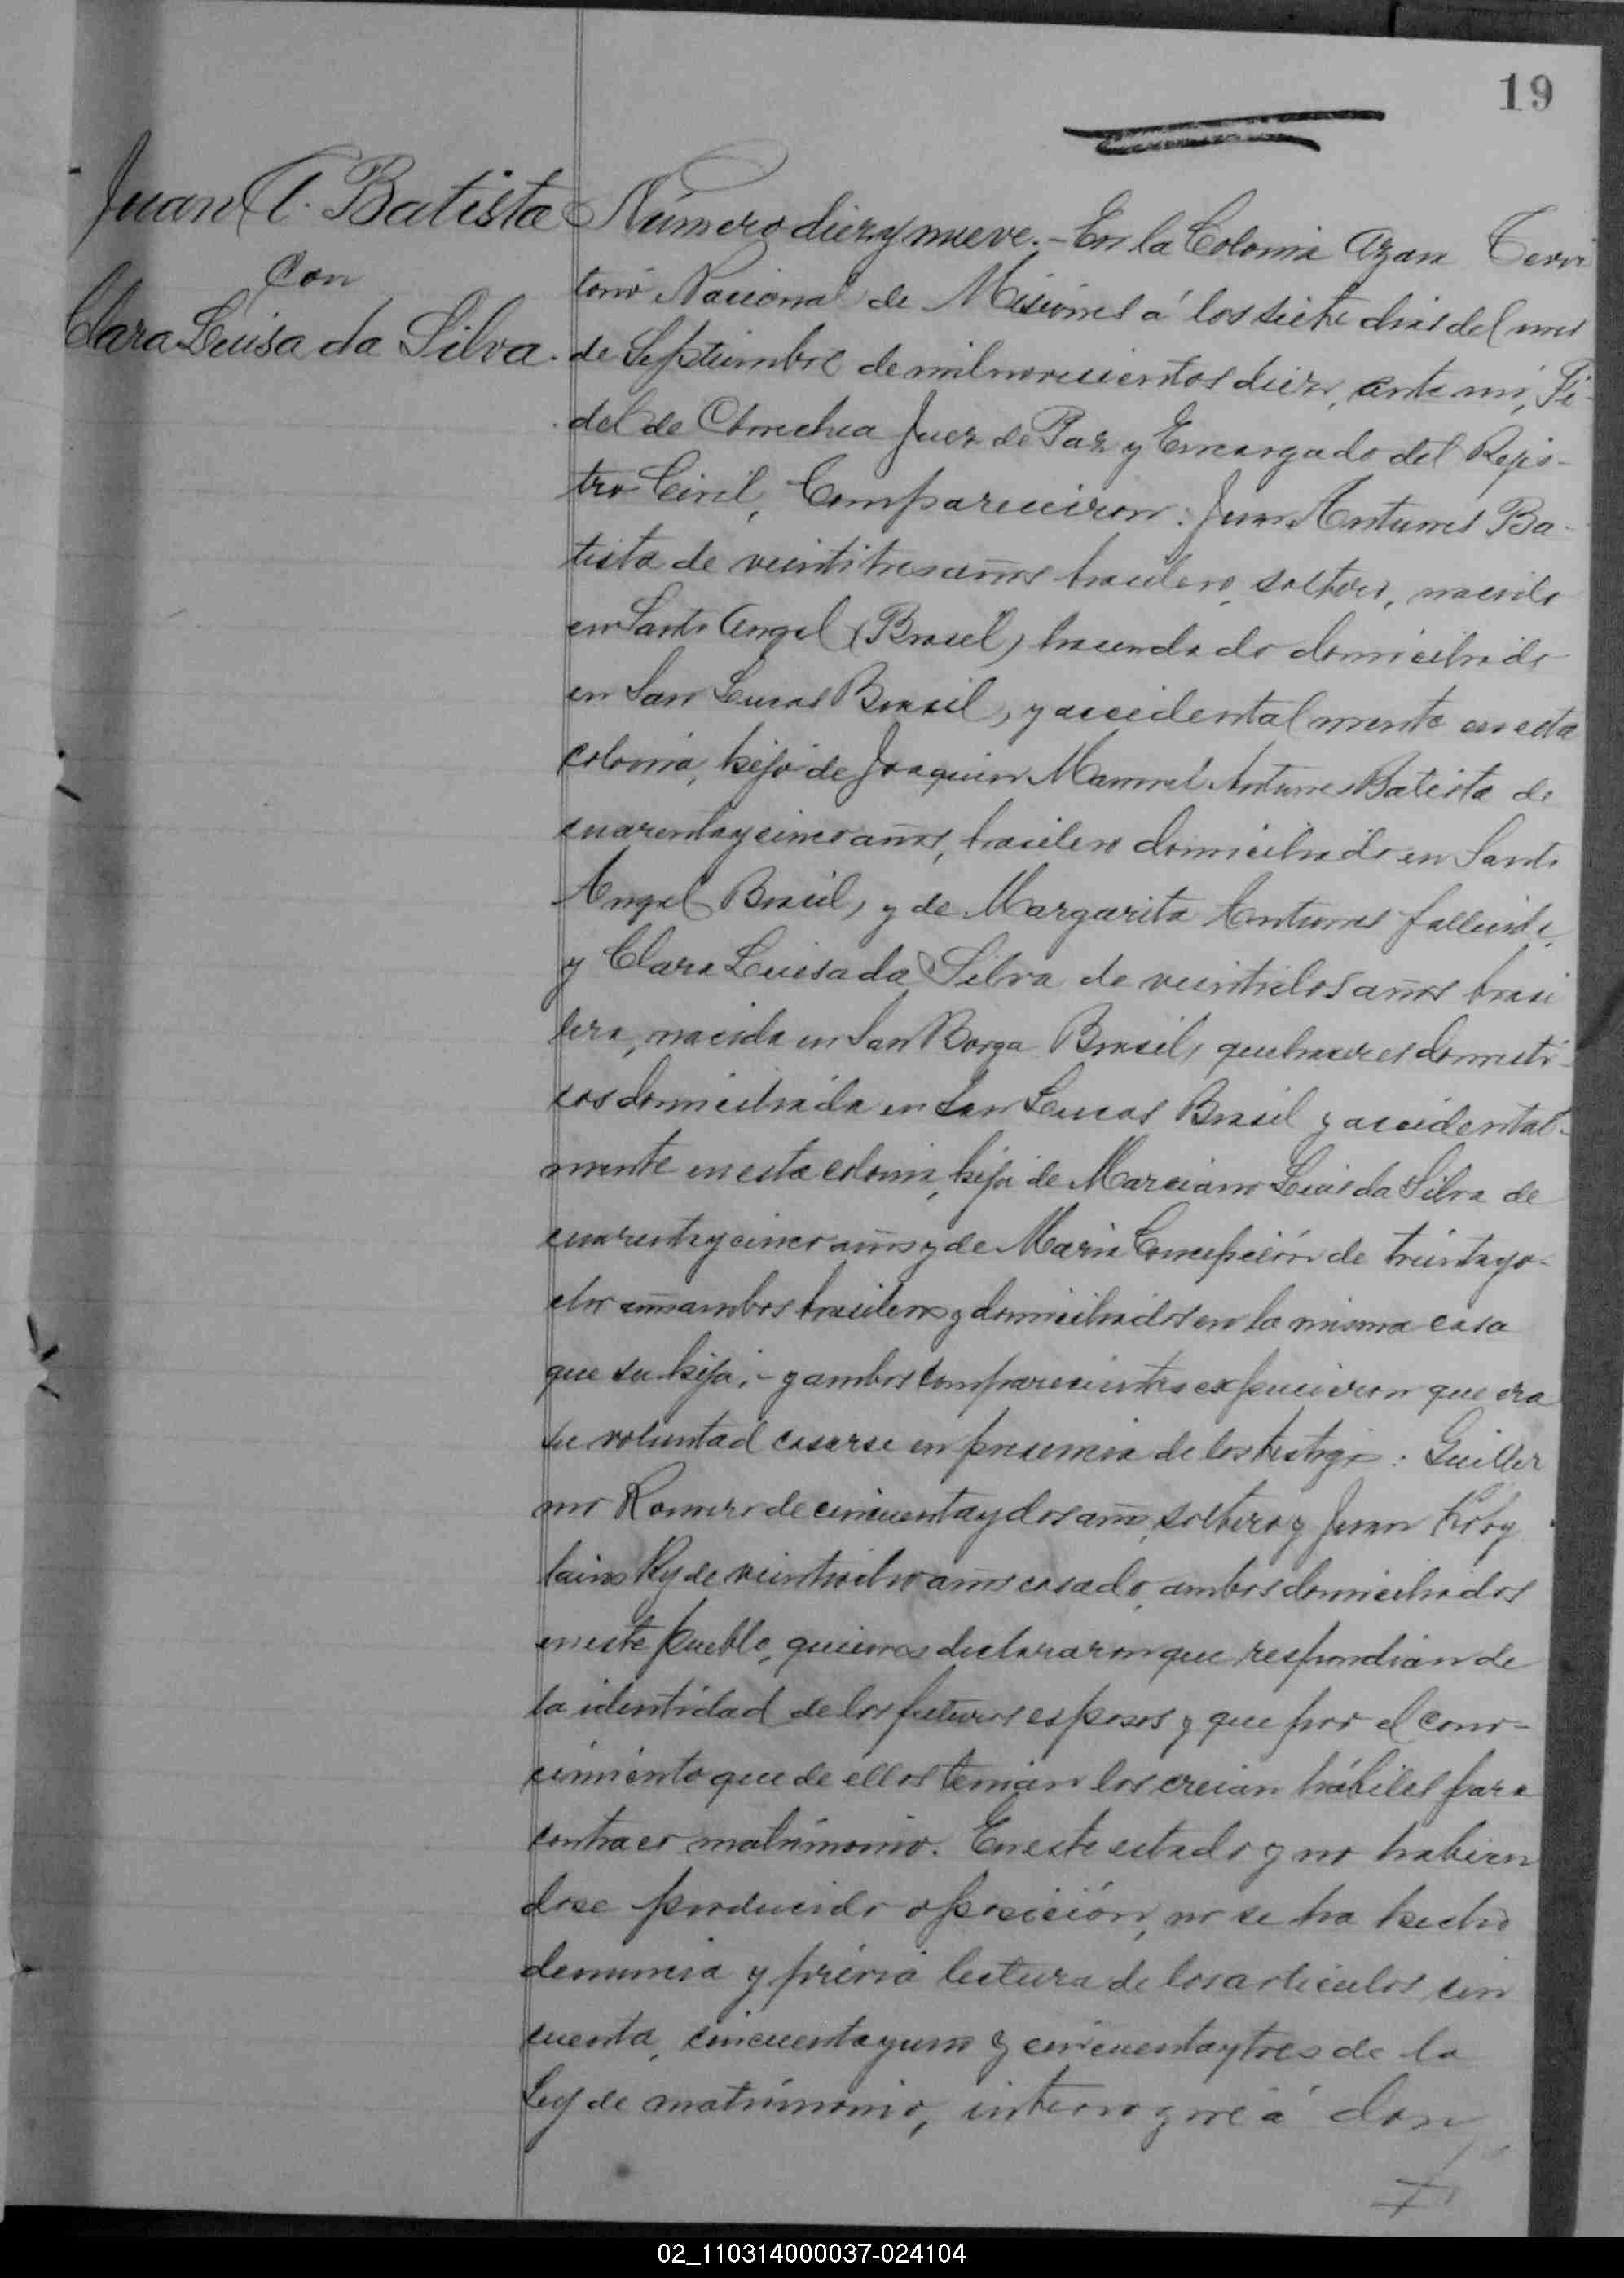 19
Juan A. Batista
Con
Clara Luisa da Silva.
Número diez y nueve.- En la Colonia Azara Terri
torio Nacional de Misiones á los siete dias del mes
de Septiembre de mil novecientos diez, ante mi, Fi-
del de Juez de Paz y Encargado del Regis-
tro Civil, Comparecieron: Juan Antunes Ba-
tista de veintitres años brasilero, soltero, nacido
en Santo Angel (Brasil) hacendado domiciliado
en San Lucas Brasil, y accidentalmente en esta
colonia, hijo de Joaquin Manuel Antunes Batista de
cuarenta y cinco años, brasilero domiciliado en Santo
Angel Brasil, y de Margarita Antunes fallecida,
y Clara Luisa da Silva de veintidos años brasi
lera, nacida en San Borja Brasil, quehaceres domesti-
cos domiciliada en San Lucas Brasil y accidental-
mente en esta colonia, hija de Marciano Luis da Silva de
cuarenta y cinco años y de Maria Concepción de treinta y o-
cho años ambos brasileros y domiciliados en la misma casa
que su hija;- y ambos comparecientes expusieron que era
su voluntad casarse en presencia de los testigos: Guiller
mo Romero de cincuenta y dos años, soltero y Juan Koby
lainsky de veintiocho años casado, ambos domiciliados
en este pueblo, quienes declararon que respondian de
la identidad de los futuros esposos y que por el cono-
cimiento que de ellos tenian los creian hábiles para
contraer matrimonio. En este estado y no habien
dose producido oposición, no se ha hecho
denuncia y prévia lectura de los articulos cin
cuenta, cincuenta y uno y cincuenta y tres de la
Ley de matrimonio, interrogué á don
02_110314000037-024104